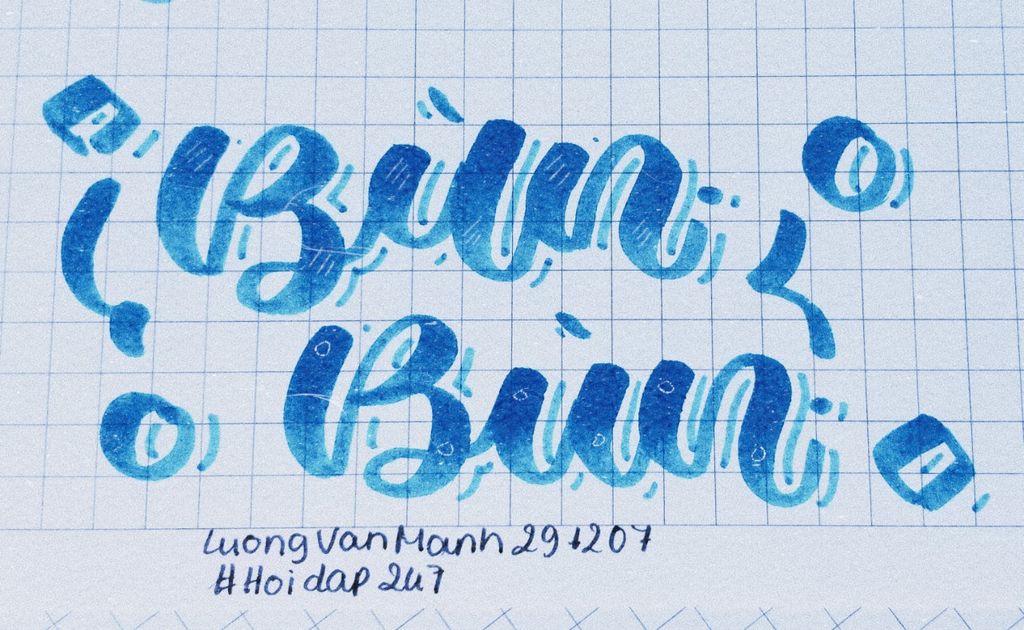 Bùn
Bùn
LuongVanManh 291207
#Hoidap 247